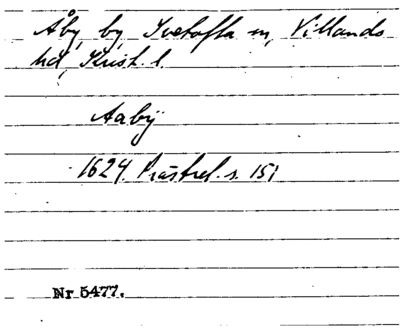 Åby, by, Ivetofta sn, Villands
hd, Krist. l.
Aabÿ
1624. Prästrel. s. 151
Nr 5477.